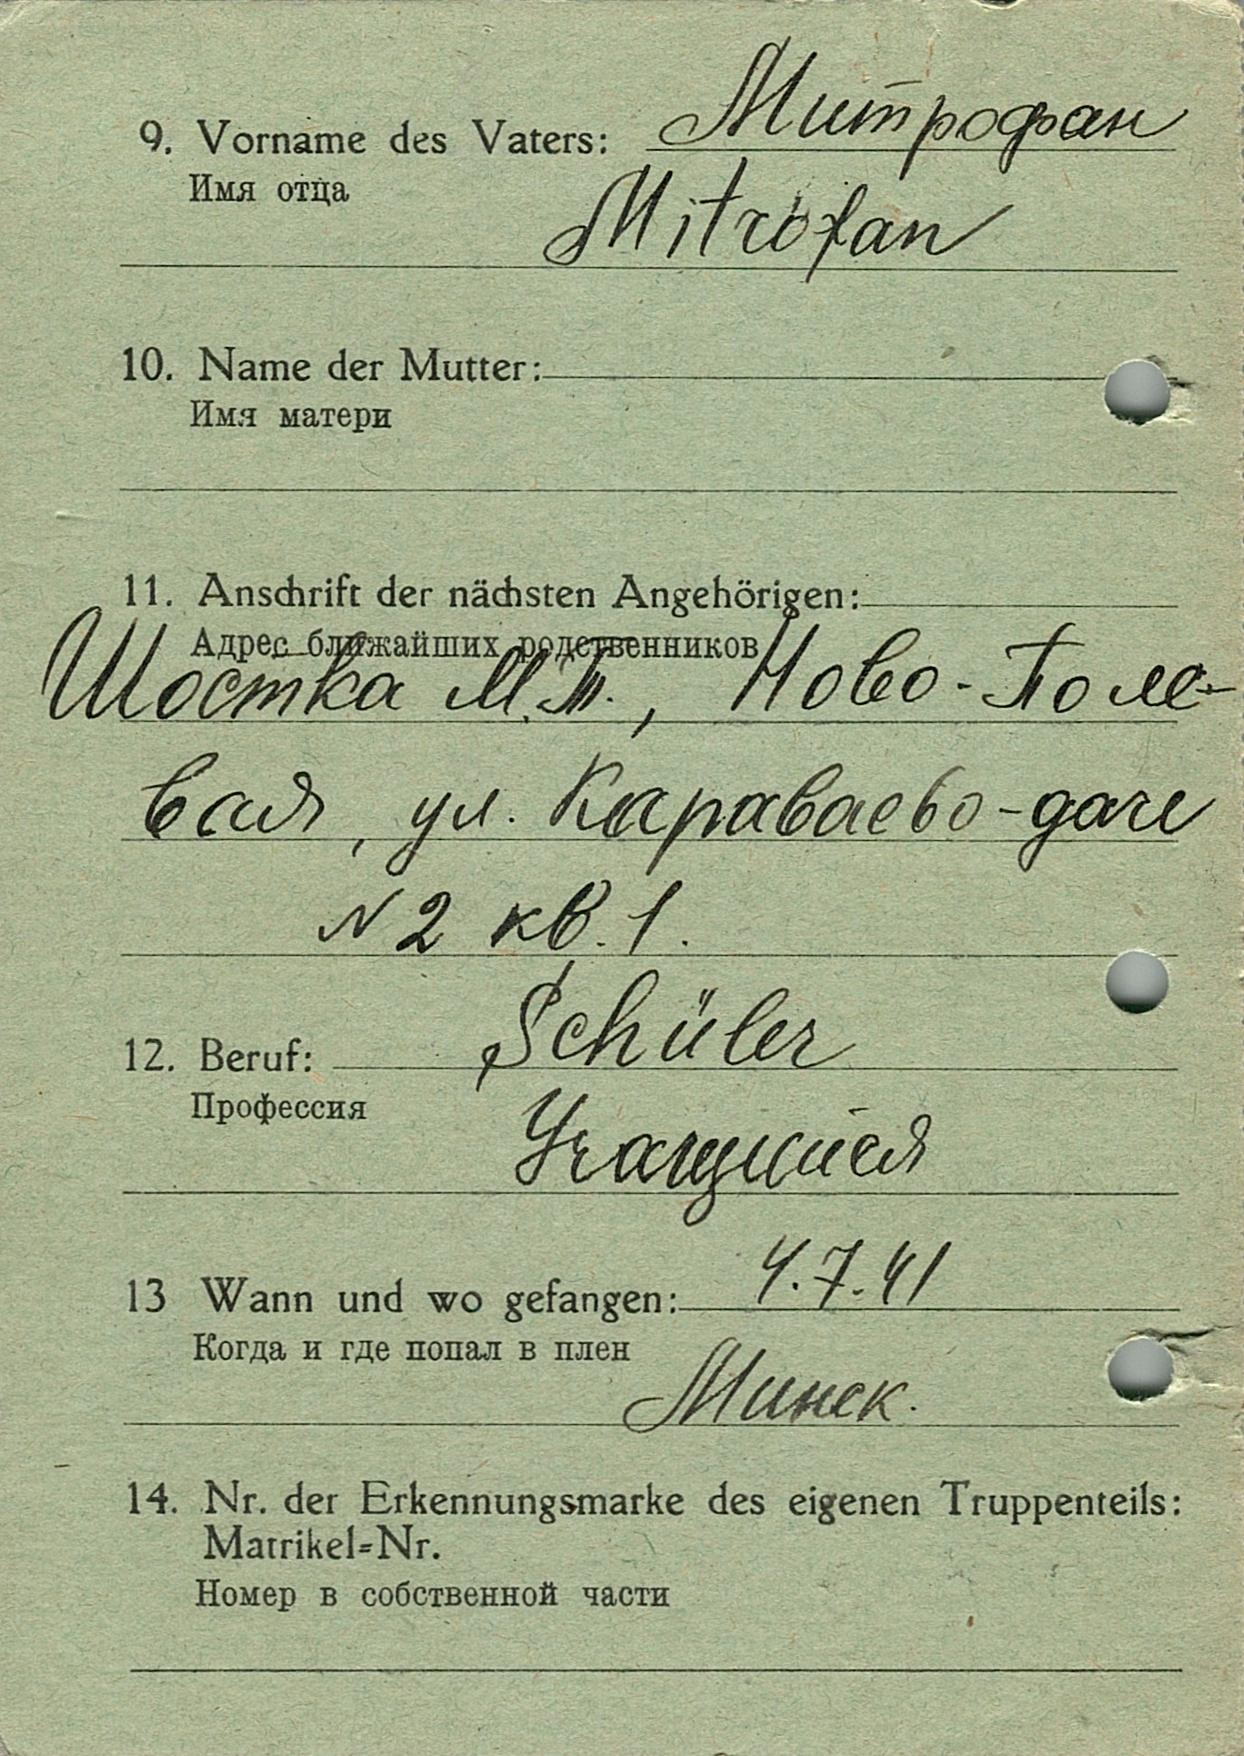 9. Vorname des Vaters: Митрофан
Имя отца
Mitrofan
10. Name der Mutter:
Имя матери
11. Anschrift der nächsten Angehörigen:
Адрес ближайших родственников
Шостка М.Т., Ново-Поле-
вая, ул. Караваево-даче
N 2 кв. 1.
12. Beruf: Schüler
Профессия
Учащийся
13 Wann und wo gefangen: 4.7.41
Когда и где попал в плен
Минск.
14. Nr. der Erkennungsmarke des eigenen Truppenteils:
Matrikel=Nr.
Номер в собственной части